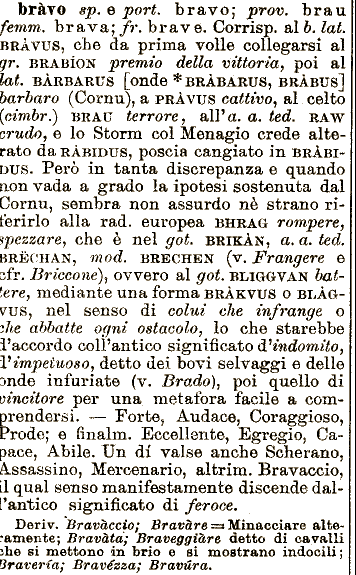 bràvo sp. e port. bravo; prov. brau
femm. brava; fr. brave. Corrisp. al b. lat.
BRÀVUS, che da prima volle collegarsi al
gr. BRABÌON premio della vittoria, poi al
lat. BÀRBARUS [onde *BRÀBARUS, BRÀBUS]
barbaro (Cornu), a PRÀVUS cattivo, al celto
(cimbr.) BRAU terrore, all'a. a. ted. RAW
crudo, e lo Storm col Menagio crede alte-
rato da RÀBIDUS, poscia cangiato in BRÀBI-
DUS. Però in tanta discrepanza e quando
non vada a grado la ipotesi sostenuta dal
Cornu, sembra non assurdo nè strano ri-
ferirlo alla rad. europea BHRAG rompere,
spezzare, che è nel got. BRIKÀN, a. a. ted.
BRËCHAN, mod. BRECHEN (v. Frangere e
cfr. Briccone), ovvero al got. BLIGGVAN bat-
tere, mediante una forma BRÀKVUS o BLÀG-
VUS, nel senso di colui che infrange o
che abbatte ogni ostacolo, lo che starebbe
d'accordo coll'antico significato d'indomito,
d'impetuoso, detto dei bovi selvaggi e delle
onde infuriate (v. Brado), poi quello di
vincitore per una metafora facile a com-
prendersi. — Forte, Audace, Coraggioso,
Prode; e finalm. Eccellente, Egregio, Ca-
pace, Abile. Un dí valse anche Scherano,
Assassino, Mercenario, altrim. Bravaccio,
il qual senso manifestamente discende dal-
l'antico significato di feroce.
Deriv. Bravàccio; Bravàre = Minacciare alte-
ramente; Bravàta; Braveggiàre detto di cavalli
che si mettono in brio e si mostrano indocili;
Bravería; Bravézza; Bravúra.